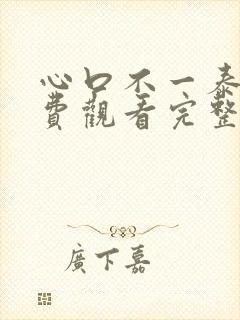 心口不一泰
費觀看完整
廣下嘉